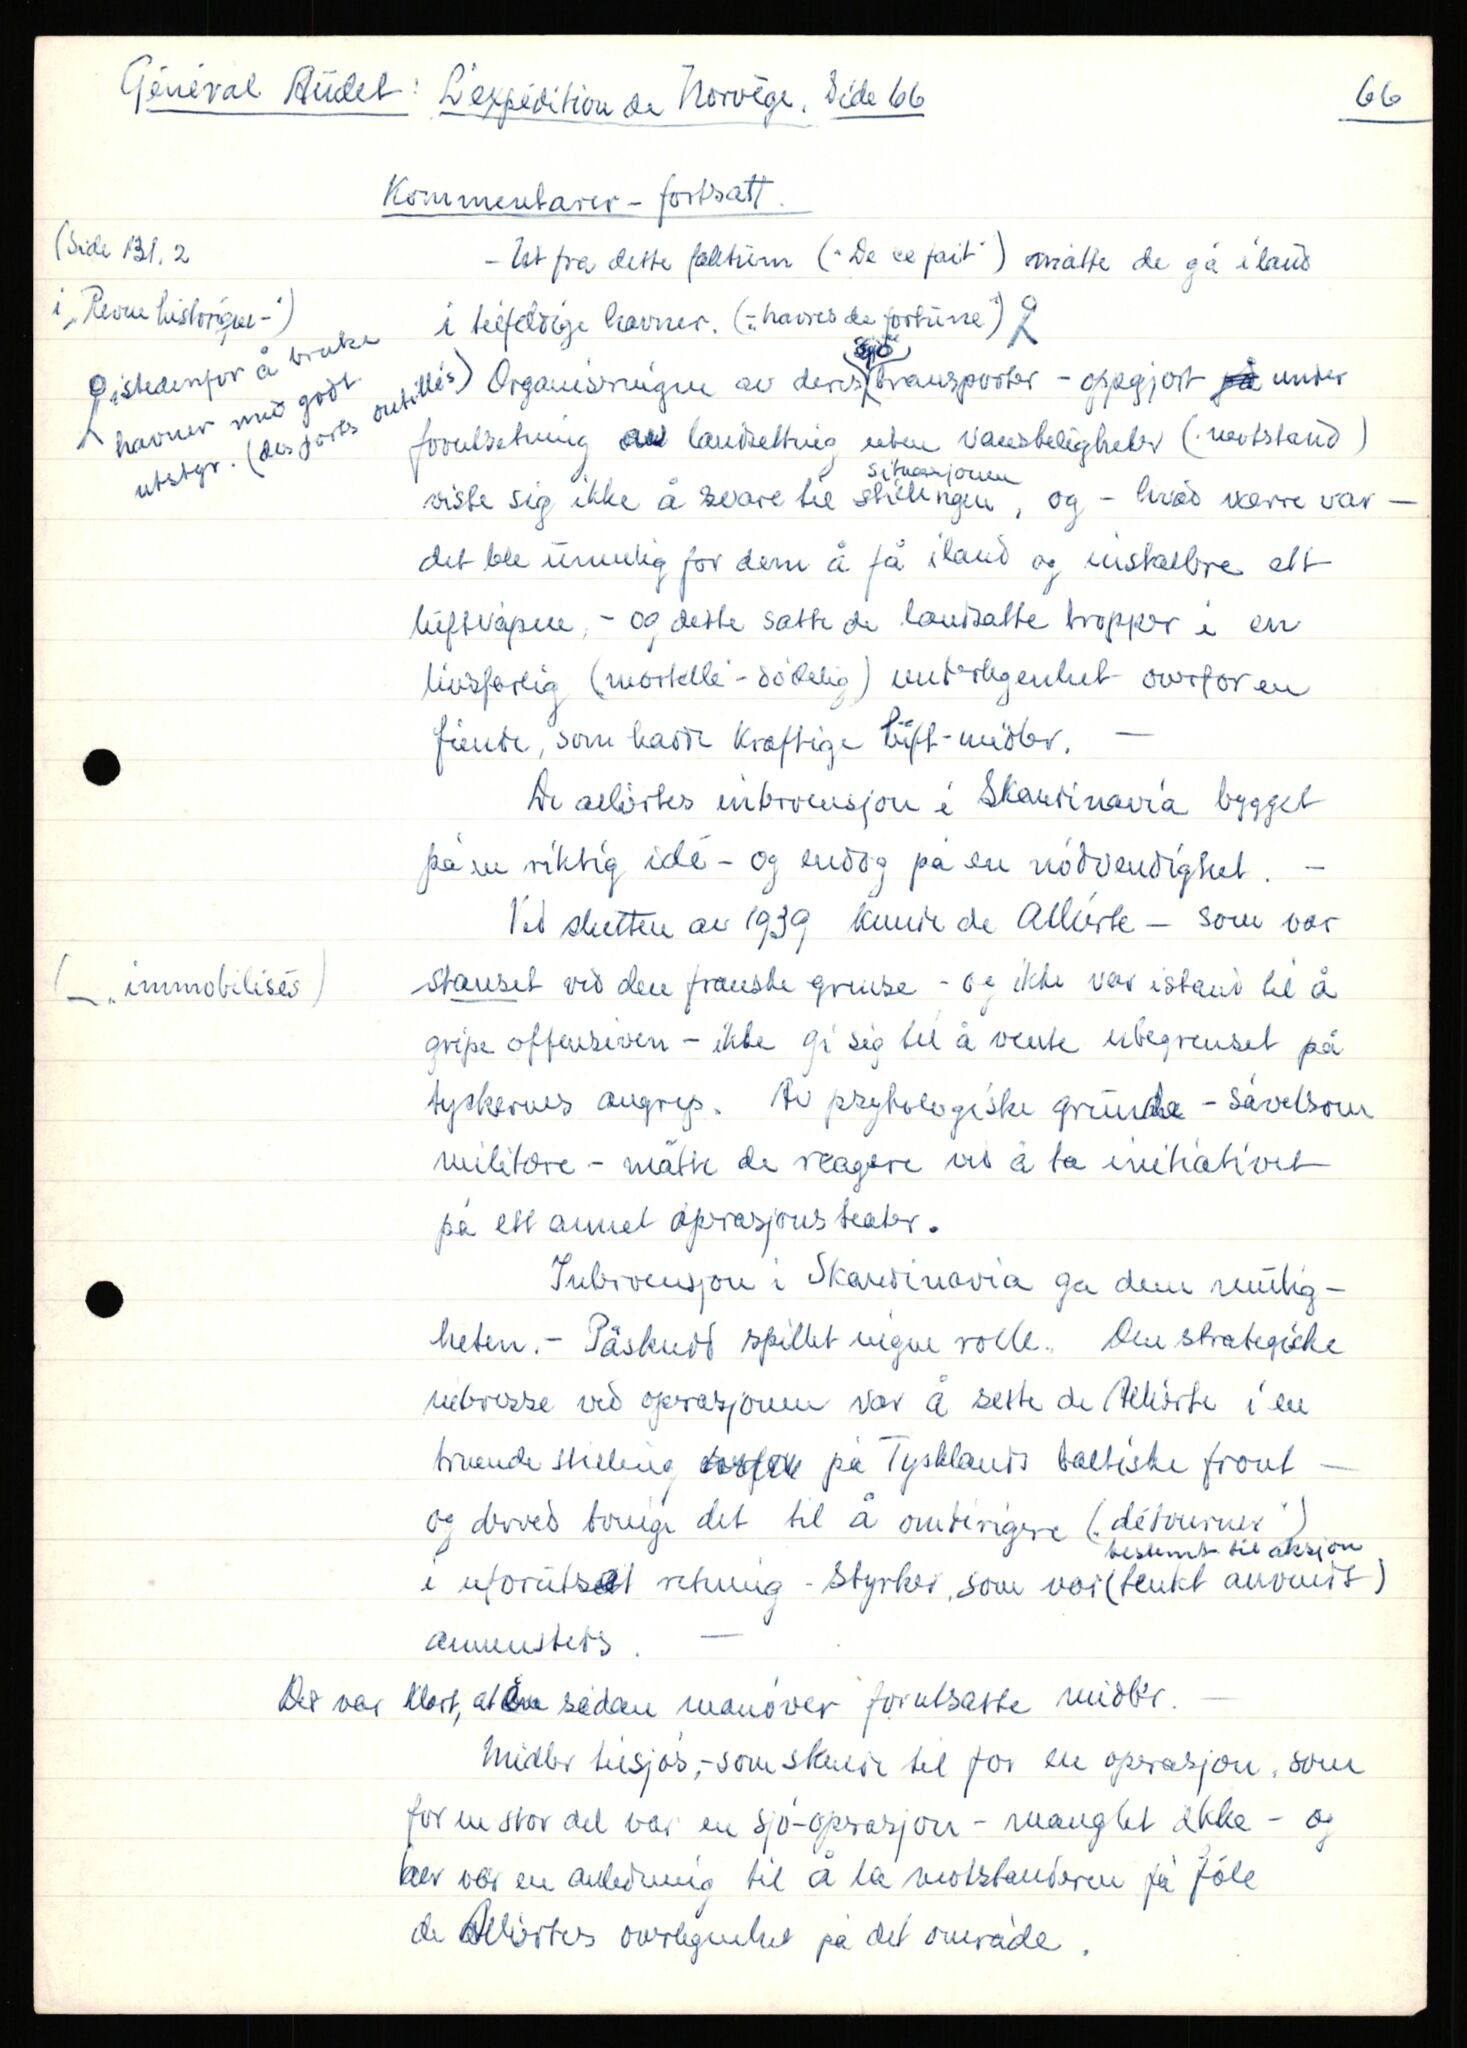 Général Audet: L'expédition de Norvège. Side 66
66
Kommentarer - fortsatt.
(Side 131. 2
i „Revue historique-")
- Ut fra dette faktum („De ce fait") måtte de gå i land
i tilfeldige havner. („havres de fortune")
istedenfor å bruke
havner med godt
utstyr. (des ports outillés)
Organiseringen av deres (sjø) transporter - oppgjort på under
forutsetning av landsetting uten vanskeligheter (motstand)
situasjonen
viste sig ikke å svare til stillingen, og - hvad værre var -
det ble umulig for dem å få iland og installere alt
luftvåpen, - og dette satte de landsatte tropper i en
livsfarlig (mortelle - dødelig) underlegenhet overfor en
fiende, som hadde kraftige luft-midler. -
De alliertes intervensjon i Skandinavia bygget
på en riktig idé - og endog på en nødvendighet. -
Ved slutten av 1939 kunde de Allierte - som var
(- „immobilisés)
stanset ved den franske grense - og ikke var istand til å
gripe offensiven - ikke gi sig til å vente ubegrenset på
tyskernes angrep. Av psykologiske grunde - såvelsom
militære - måtte de reagere ved å ta initiativet
på ett annet operasjonsteater.
Intervensjon i Skandinavia ga dem mulig-
heten. - Påskudd spillet ingen rolle. Den strategiske
interesse ved operasjonen var å sette de Allierte i en
truende stilling på Tysklands baltiske front -
og derved tvinge det til å omdirigere („détourner")
bestemt til aksjon
i uforutsett retning - styrker, som var (tenkt anvendt)
annensteds. -
Det var klart, at en sådan manøver forutsatte midler. -
Midler tilsjøs, - som skulde til for en operasjon, som
for en stor del var en sjø-operasjon - manglet ikke - og
her var en anledning til å la motstanderen få føle
de Alliertes overlegenhet på det område.